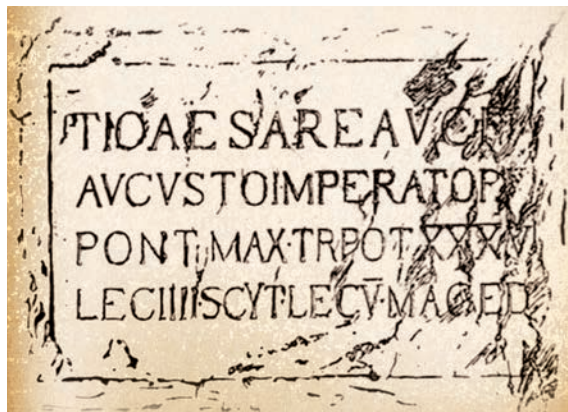 TI·CAESARE AVG F
AVGVSTO IMPERATORE
PONT·MAX·TR·POT·XXXV
LEG IIII SCYT·LEG V·MACED